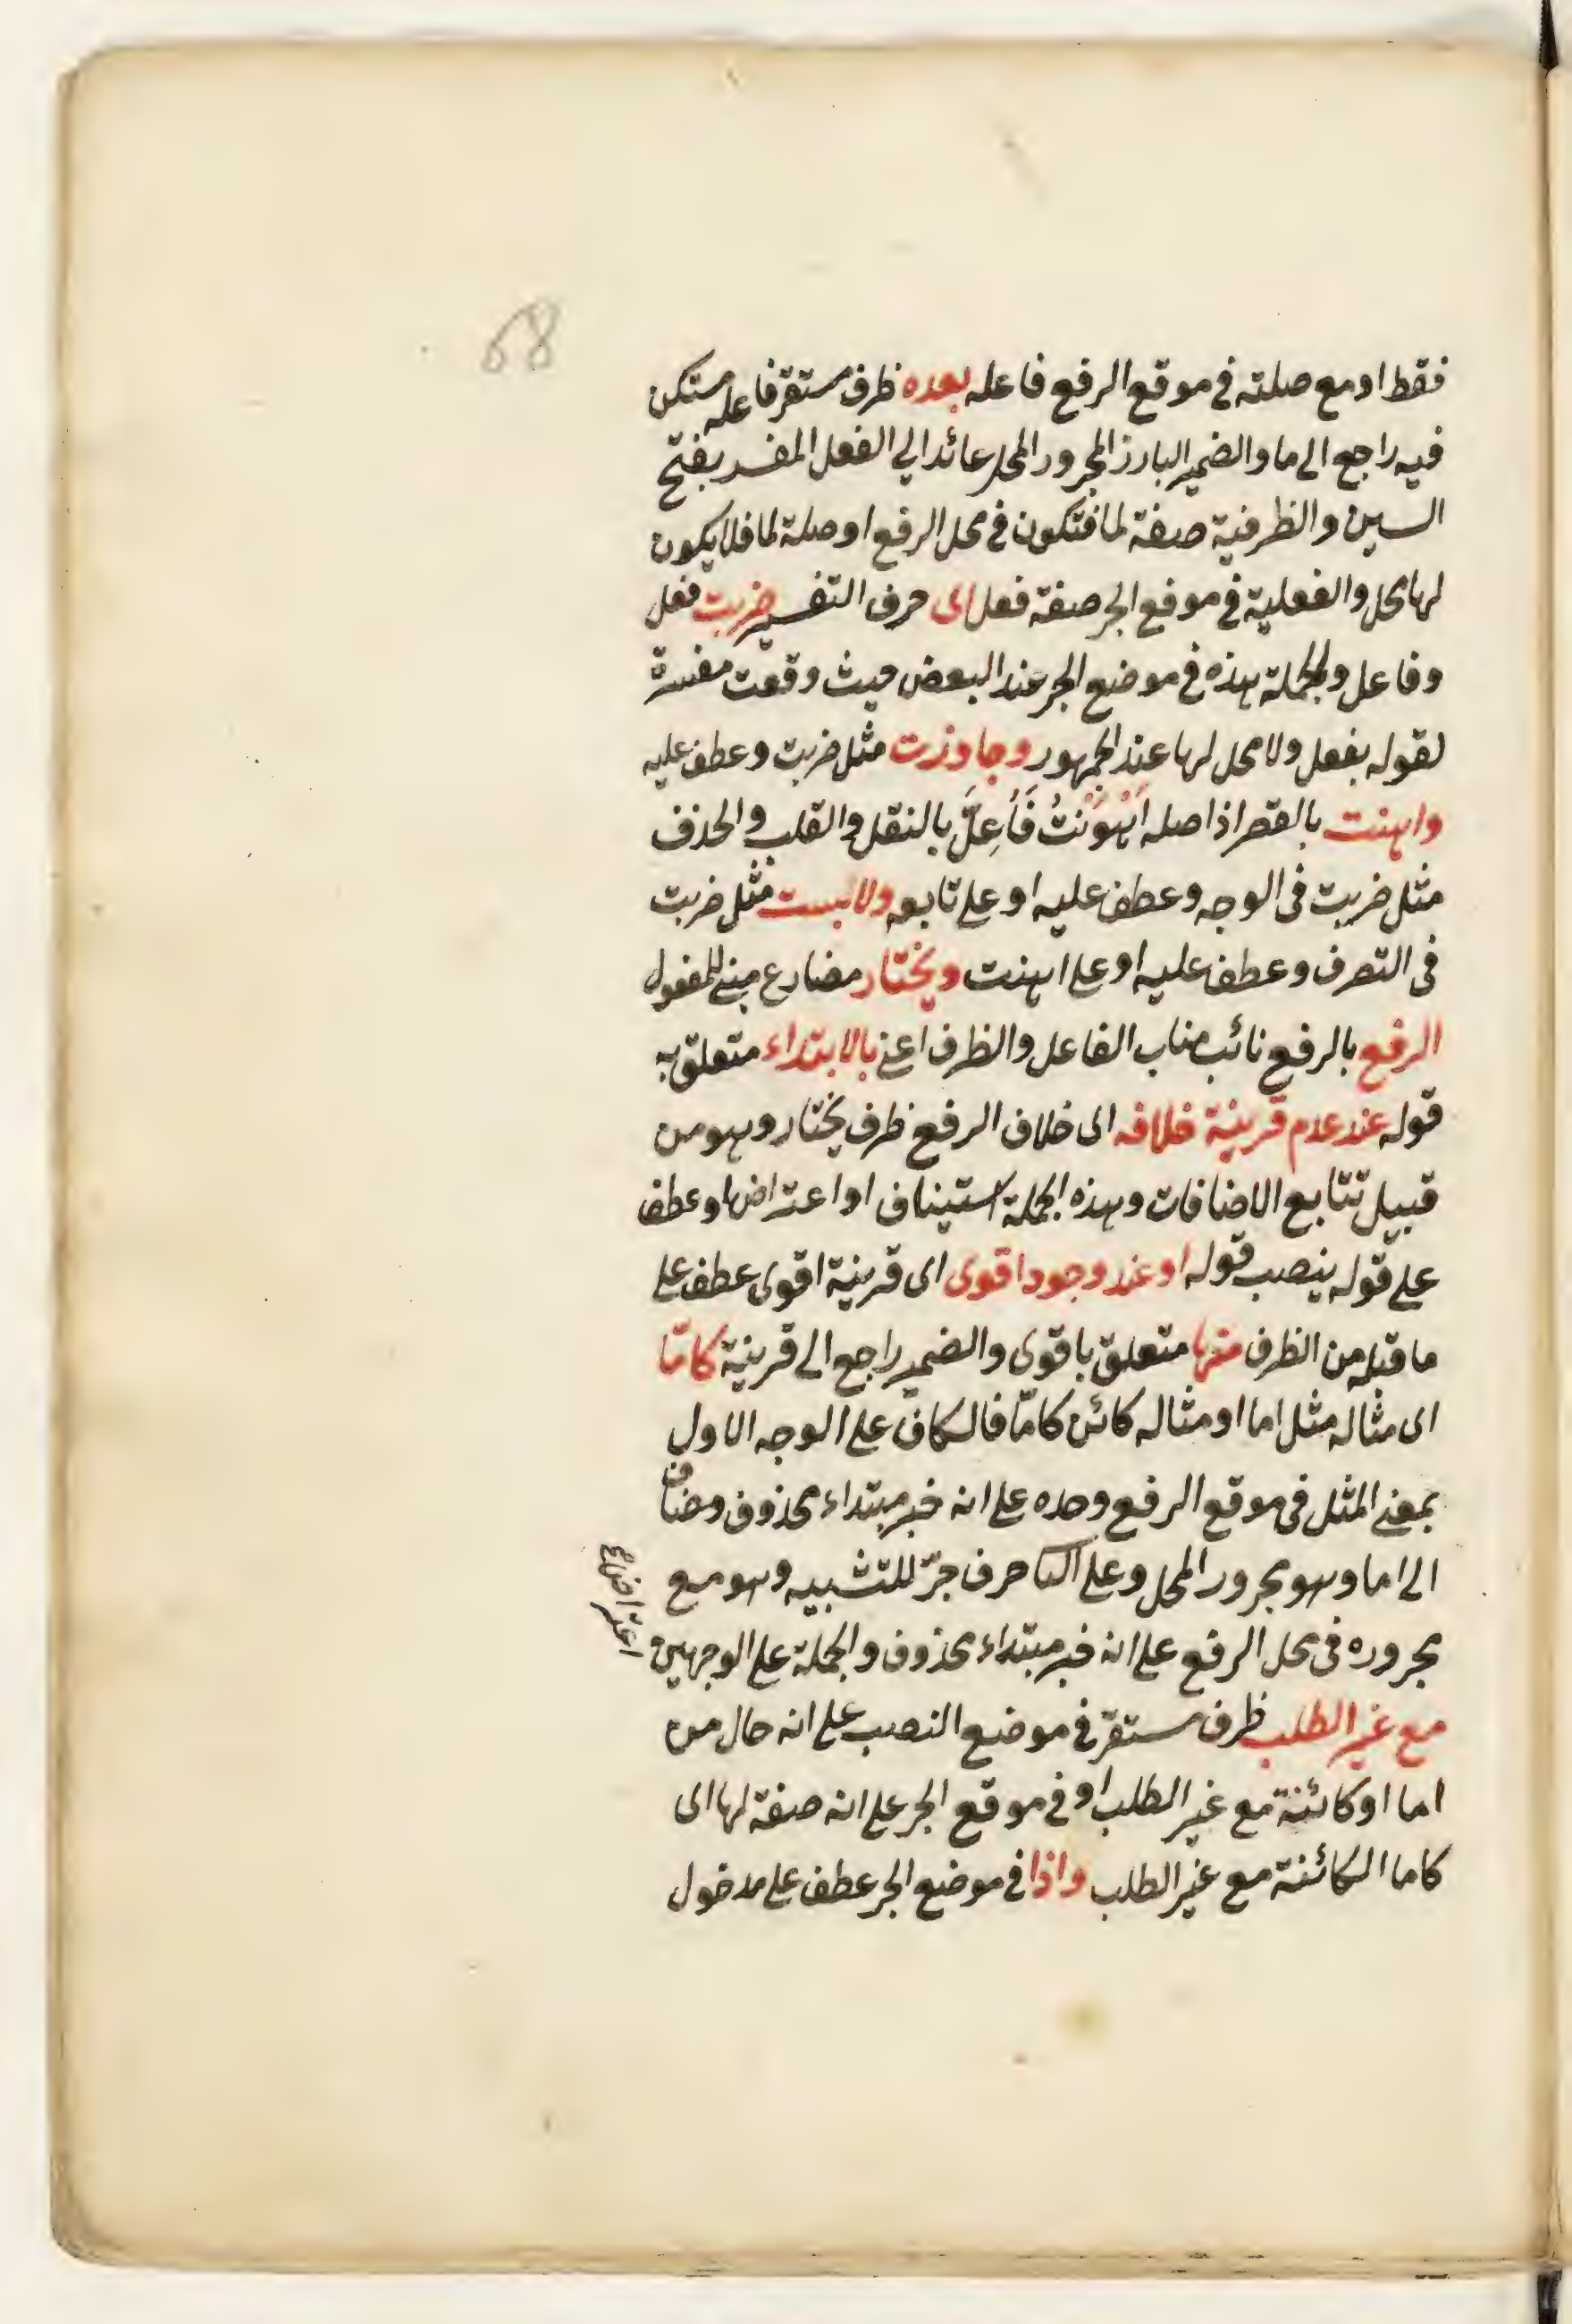 68
فقط او مع صلته فى موقع الرفع فاعله بعده ظرف مستقر فاعله مستكن
فيه راجع الى ما والضمير البارز المجرور المحل عائد الي الفعل المفسر بفتح
السين والظرفية صفة لما فتكون فى محل الرفع او صلة لما فلا يكون
لها محل والفعلية فى موقع الجر صفة فعل اى حرف التفسير ضربت فعل
وفاعل والجملة هذه فى موضع الجر عند البعض حيث وقعت مفسرة
لقوله بفعل ولا محل لها عند الجمهور وجاوزت مثل ضربت وعطف عليه
واهنت بالقصر اذ اصله اَهْوَنْتُ فَأُعِلَّ بالنقل والقلب والحذف
مثل ضربت فى الوجه وعطف عليه او على تابعه ولابست مثل ضربت
فى التصرف وعطف عليه او على اهنت ويختار مضارع مبنى للمفعول
الرفع بالرفع نائب مناب الفاعل والظرف اعنى بالابتداء متعلق به
قوله عند عدم قرينة خلافه اى خلاف الرفع ظرف يختار وهو من
قبيل تتابع الاضافات وهذه الجملة استيناف او اعتراضها وعطف
على قوله ينصب قوله او عند وجود اقوى اى قرينة اقوى عطف على
ما قبله من الظرف منها متعلق باقوى والضمير راجع الى قرينة كامّا
اى مثاله مثل اما او مثاله كائن كامّا فالكاف على الوجه الاول
بمعنى المثل فى موقع الرفع وحده على انه خبر مبتداء محذوف ومضاف
الى اما وهو مجرور المحل وعلى الثا حرف جرّ للتشبيه وهو مع
مجروره فى محل الرفع على انه خبر مبتداء محذوف والجملة على الوجهين
اعتراض
مع غير الطلب ظرف مستقر فى موضع النصب على انه حال من
اما او كائنة مع غير الطلب او فى موقع الجر على انه صفة لها اى
كاما الكائنة مع غير الطلب واذا فى موضع الجر عطف على مدخول